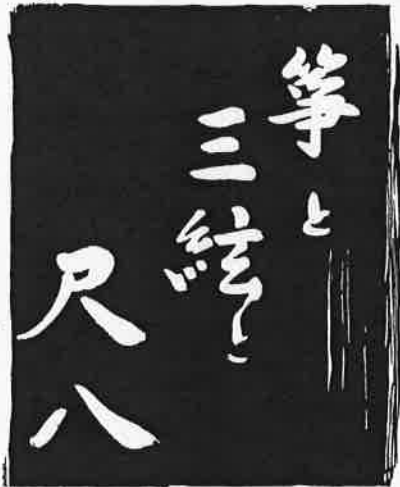 箏と
三絃と
尺八